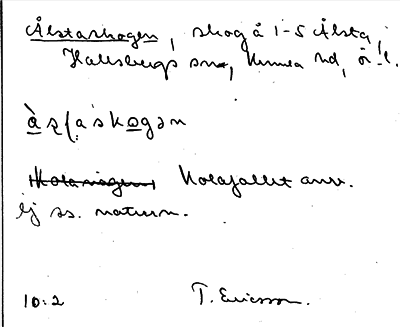 Ålstaskogen, skog å 1-5 Ålsta,
Hallsbergs sn, Kumla hd, ör. l.
Kolafallet anv.
Ej ss. naturn.
10:2 T. Ericsson.